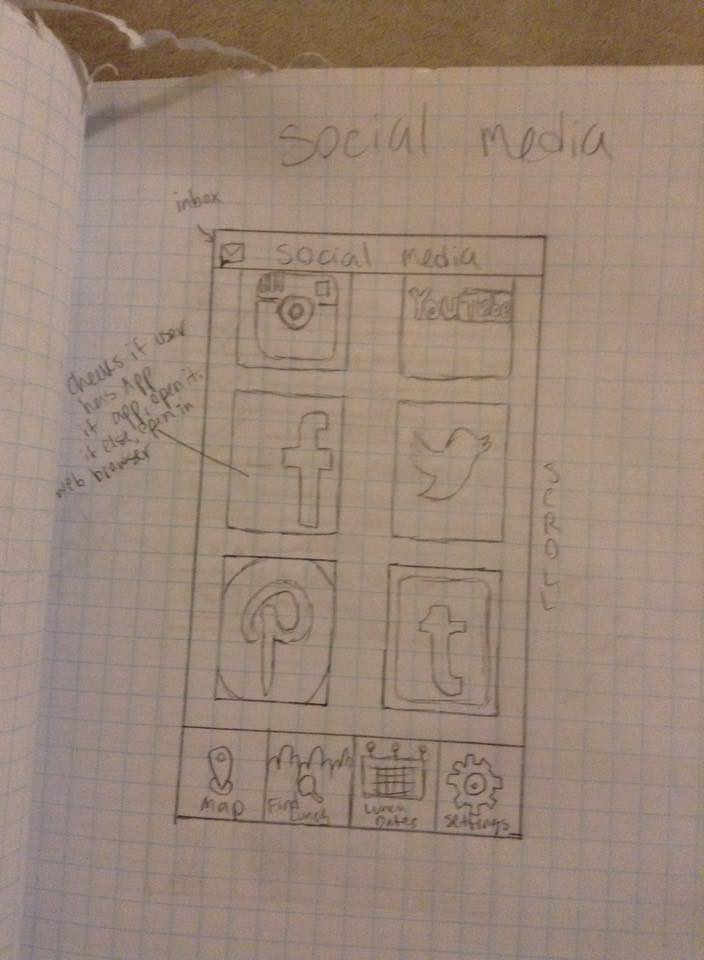 social media
inbox
social media
YouTube
checks if user
has App
if app, open it.
if else, open in
web browser
f
SCROLL
P
t
Map
Find
Lunch
Lunch
Dates
settings